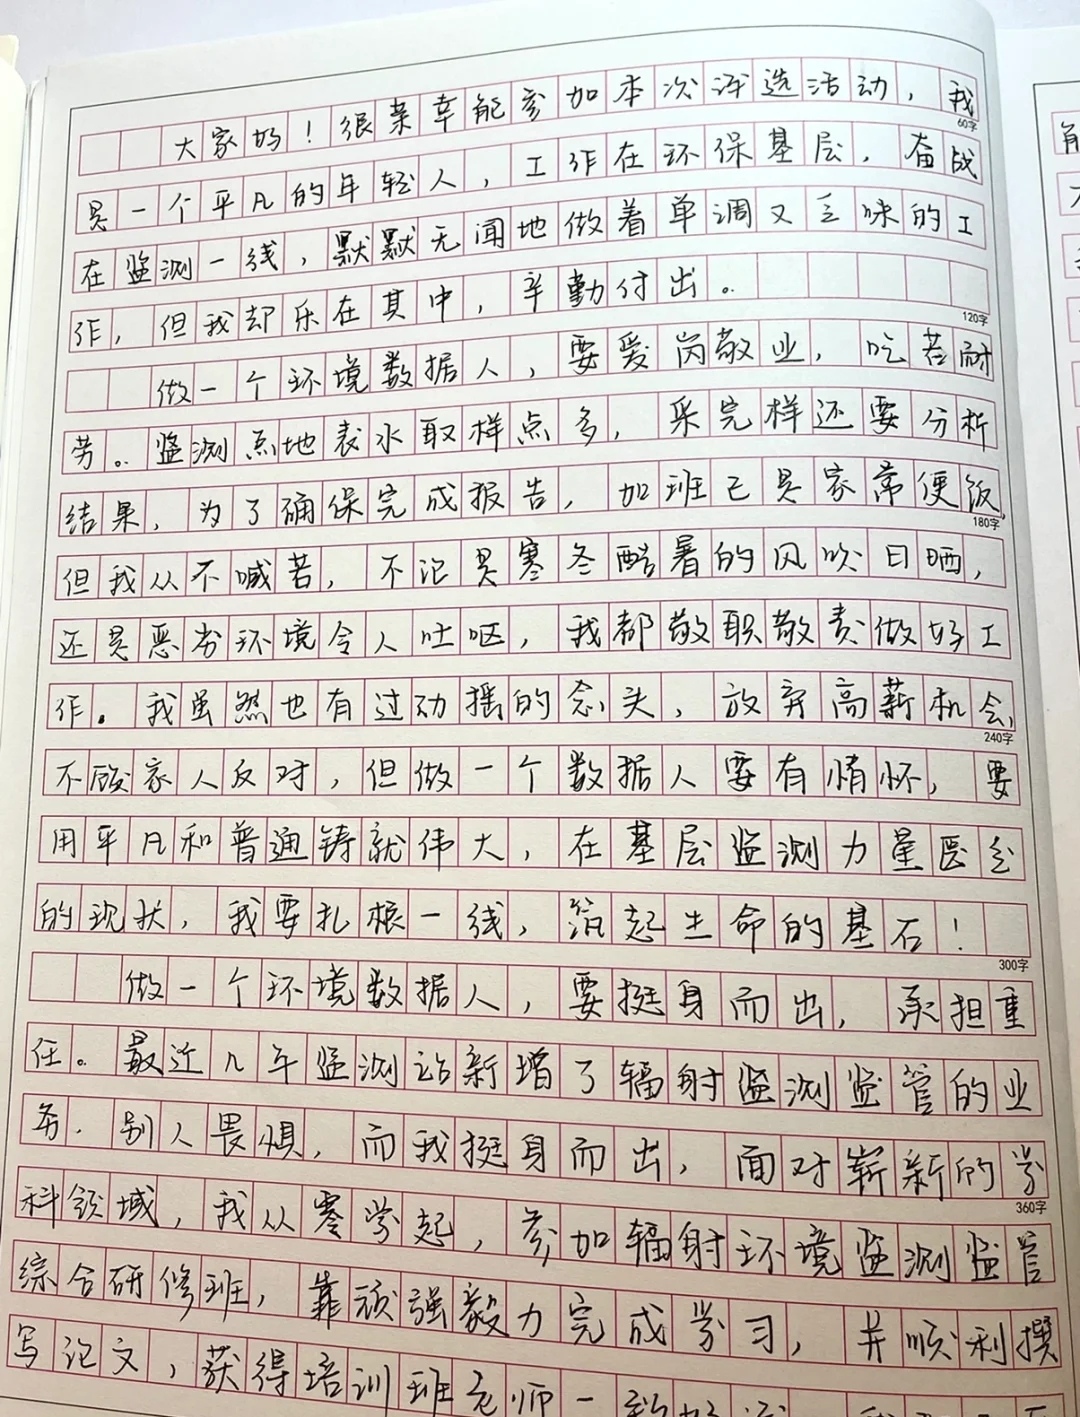 大家好！很荣幸能参加本次评选活动，我
60字
是一个平凡的年轻人，工作在环保基层，奋战
在监测一线，默默无闻地做着单调又乏味的工
作，但我却乐在其中，辛勤付出。
120字
做一个环境数据人，要爱岗敬业，吃苦耐
劳。监测点地表水取样点多，采完样还要分析
结果，为了确保完成报告，加班已是家常便饭，
180字
但我从不喊苦，不论是寒冬酷暑的风吹日晒，
还是恶劣环境令人吐呕，我都敬职敬责做好工
作。我虽然也有过动摇的念头，放弃高薪机会，
240字
不顾家人反对，但做一个数据人要有情怀，要
用平凡和普通铸就伟大，在基层监测力量匮乏
的现状，我要扎根一线，筑起生命的基石！
300字
做一个环境数据人，要挺身而出，承担重
任。最近几年监测站新增了辐射监测监管的业
务．别人畏惧，而我挺身而出，面对崭新的学
360字
科领域，我从零学起，参加辐射环境监测监管
综合研修班，靠顽强毅力完成学习，并顺利撰
写论文，获得培训班老师一致好评